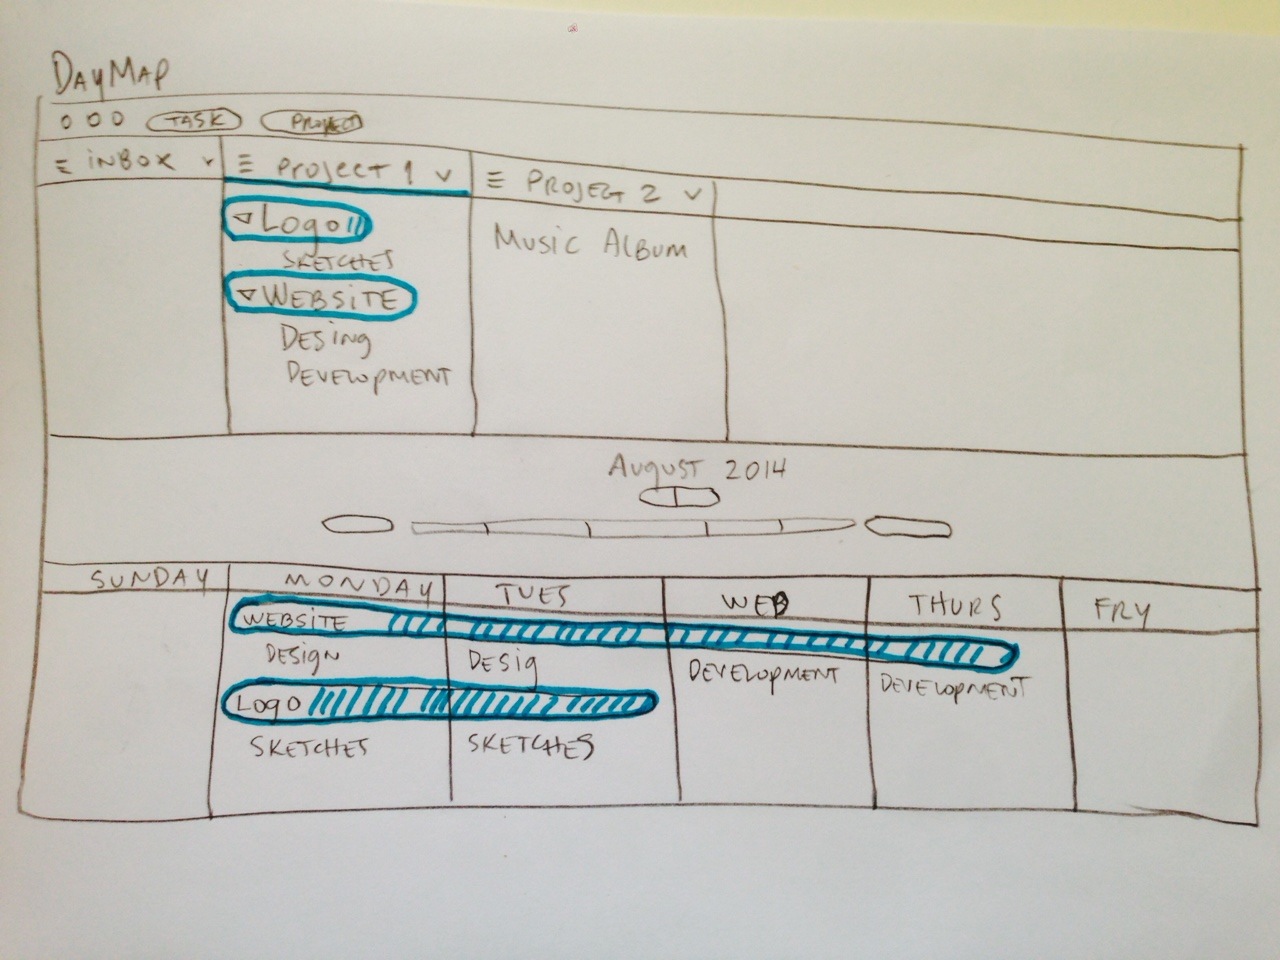 DAYMAP
TASK PROJECT
INBOX PROJECT 1 PROJECT 2
LOGO
SKETCHES
WEBSITE
DESING
DEVELOPMENT
MUSIC ALBUM
AUGUST 2014
SUNDAY MONDAY TUES WED THURS FRY
WEBSITE
DESIGN DESIG DEVELOPMENT DEVELOPMENT
LOGO
SKETCHES SKETCHES